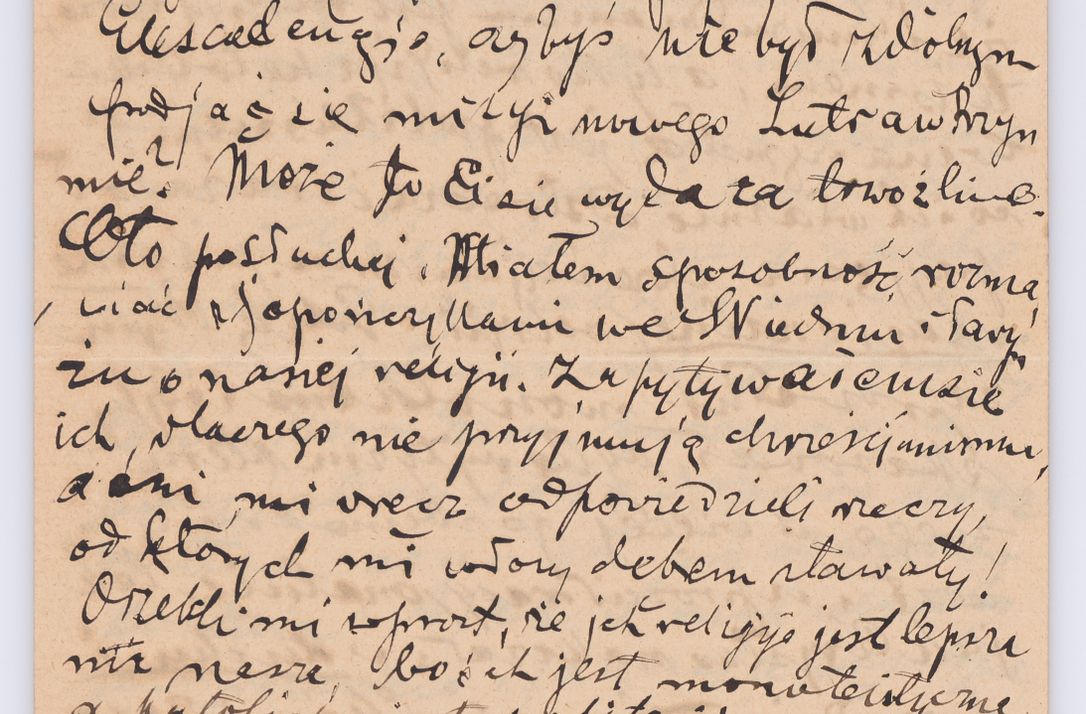 czybyś nie był zdolnym
podjąć się misyi nowego
mie? Może to Ci się wyda za
Oto posłuchaj. Miałem sposobność rozma,
wiać z Japończykami we Wiedniu i Pary
żu o naszej religii. Zapytywałem się
ich, dlaczego nie przyjmują chrześcijanizmu,
a oni mi wręcz odpowiedzieli rzeczy,
od których mi włosy dębem stawały!
Orzekli mi wprost, że ich religja jest lepsza
niż nasza, bo ich jest monoteistyczną
a katolicka jest